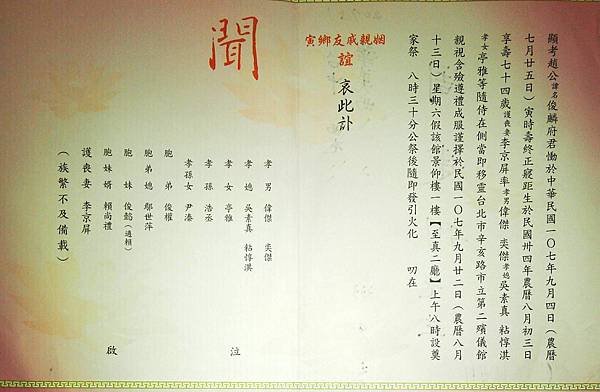 顯考趙公諱名俊麟府君慟於中華民國一〇七年九月四日（農曆
七月廿五日）寅時壽終正寢距生於民國卅四年農曆八月初三日
享壽七十四歲護喪妻李京屏率孝男偉傑 奕傑孝媳吳素真 粘惇淇
孝女亭雅等隨侍在側當即移靈台北市辛亥路市立第二殯儀館
親視含殮遵禮成服謹擇於民國一〇七年九月廿二日（農曆八月
十三日）星期六假該館景仰樓一樓【至真二廳】上午八時設奠
家祭 八時三十分公祭後隨即發引火化 叨在
姻親戚友鄉寅
誼 哀此訃
聞
孝男 偉傑 奕傑
孝媳 吳素真 粘惇淇
孝女 亭雅
孝孫 浩丞
孝孫女 尹溱
胞弟 俊權
胞弟媳 鄔世萍
胞妹 俊懿（適賴）
胞妹婿 賴尚禮
護喪妻 李京屏
泣
啟
（族繁不及備載）